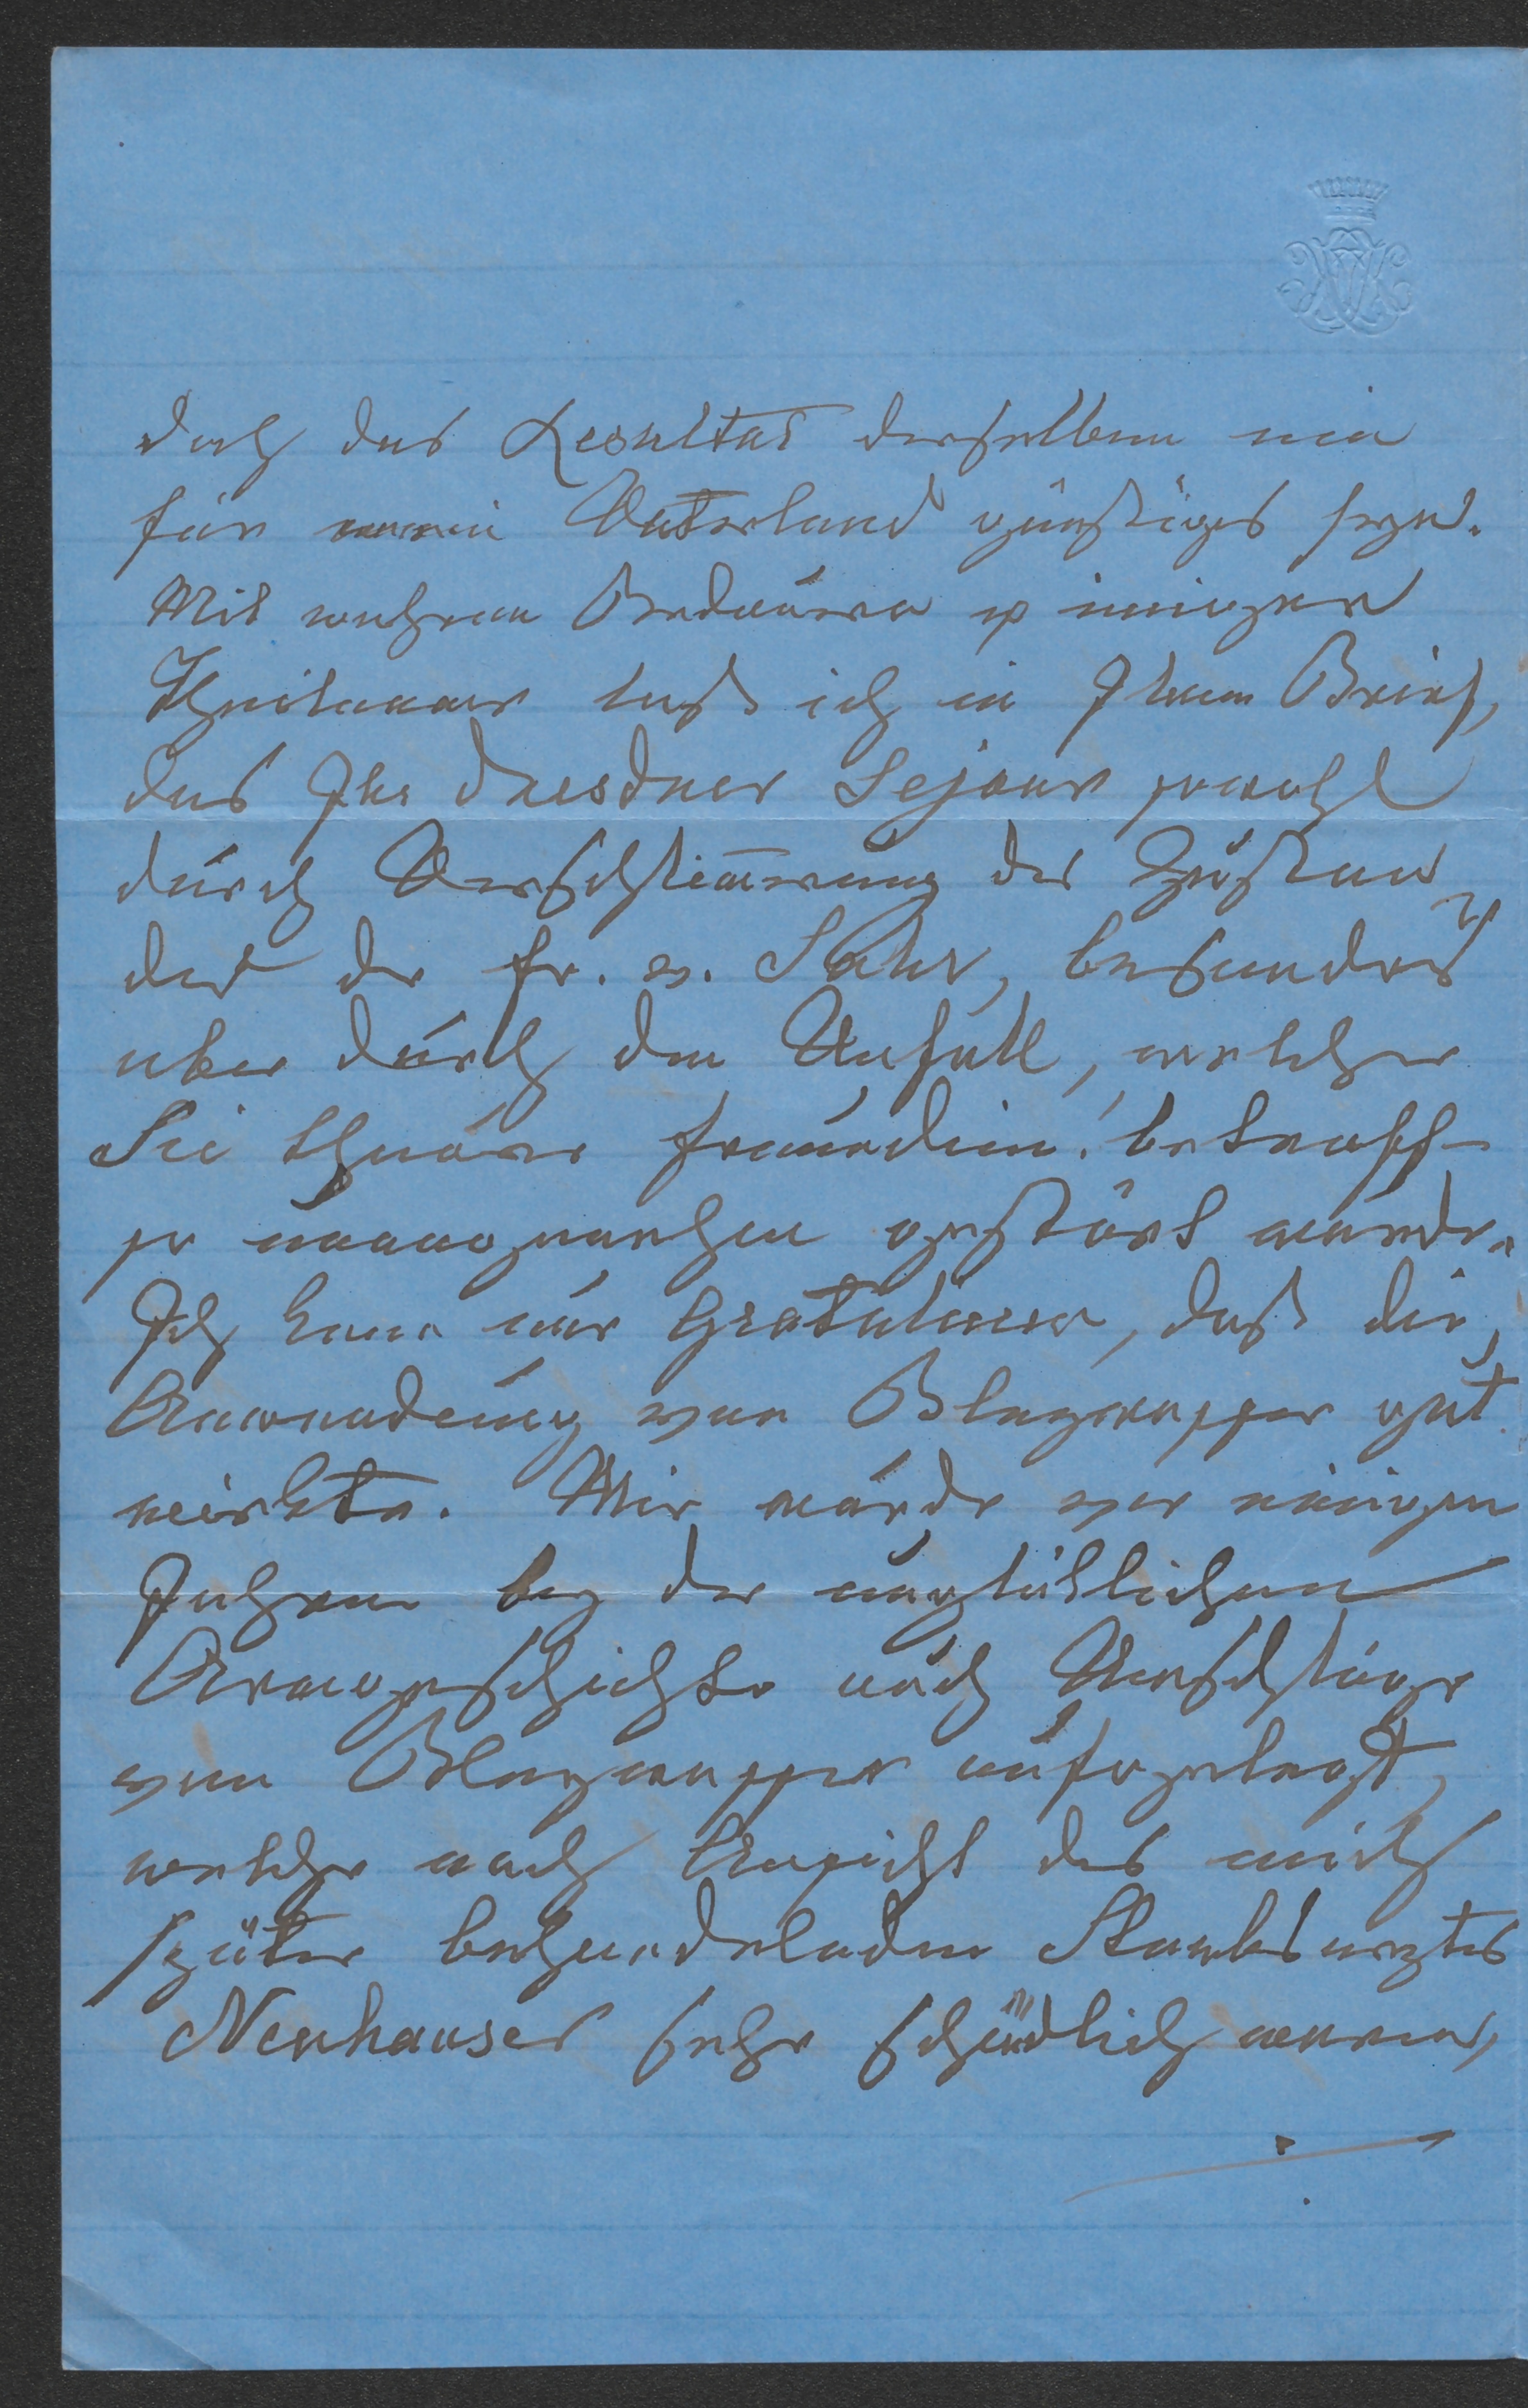 doch das Resultat derselben ein
für mein Vaterland günstiges seyn.
Mit wahrem Bedauern u innigen
Theilname laß ich in Ihrem Brief,
das Ihr Dresdner Sejour sowohl
durch Verschlimmerung des Zustan
des der Fr. v. Sahr, besonders
aber durch den Unfall, welcher
Sie theuere Freundin! betraff
so unangenehm gestört wurde.
Ich kann nur Gratulieren, daß die
Anwendung von Bleywasser gut
wirkte. Mir wurde vor einigen
Jahren bey der unglücklichen
Armgeschichte auch Umschläge
von Bleywasser aufgelegt,
welche nach Ansicht des mich
später behandelnden Stabsarztes
Neuhauser sehr schädlich waren,